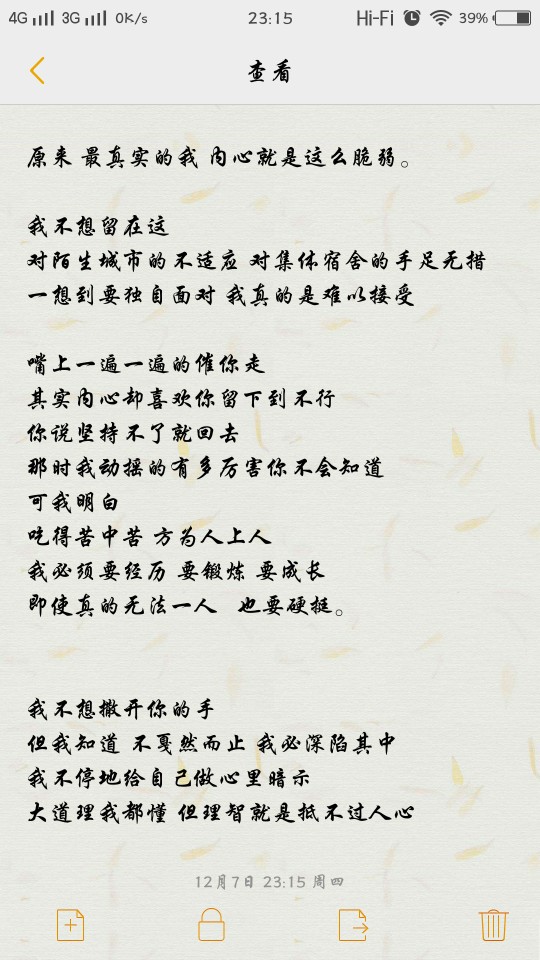 4G 3G 0K/s 23:15 Hi-Fi 39%
查看
原来 最真实的我 内心就是这么脆弱。
我不想留在这
对陌生城市的不适应 对集体宿舍的手足无措
一想到要独自面对 我真的是难以接受
嘴上一遍一遍的催你走
其实内心却喜欢你留下到不行
你说坚持不了就回去
那时我动摇的有多厉害你不会知道
可我明白
吃得苦中苦 方为人上人
我必须要经历 要锻炼 要成长
即使真的无法一人 也要硬挺。
我不想撒开你的手
但我知道 不戛然而止 我必深陷其中
我不停地给自己做心里暗示
大道理我都懂 但理智就是抵不过人心
12月7日 23:15 周四